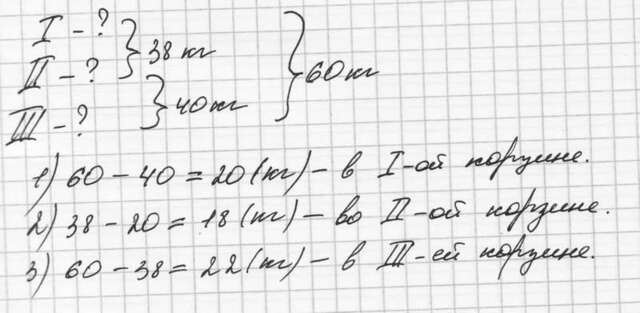 I - ?
38 кг
II - ?
60 кг
40 кг
III - ?
1) 60 - 40 = 20 (кг) - в I-ой корзине.
2) 38 - 20 = 18 (кг) - во II-ой корзине.
3) 60 - 38 = 22 (кг) - в III-ей корзине.